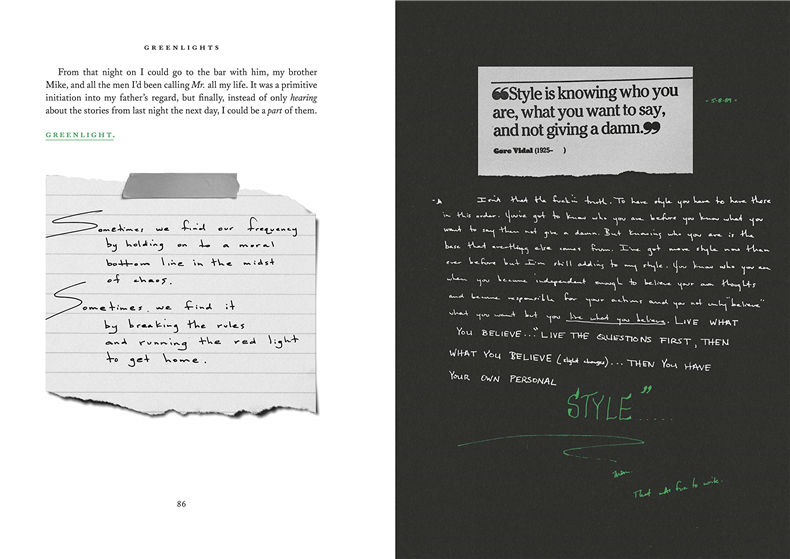 GREENLIGHTS
From that night on I could go to the bar with him, my brother
Mike, and all the men I'd been calling Mr. all my life. It was a primitive
initiation into my father's regard, but finally, instead of only hearing
about the stories from last night the next day, I could be a part of them.
GREENLIGHT.
Sometimes we find our frequency
by holding on to a moral
bottom line in the midst
of chaos.
Sometimes we find it
by breaking the rules
and running the red light
to get home.
86
❝Style is knowing who you
are, what you want to say,
and not giving a damn.❞
Gore Vidal (1925- )
-5-8-89-
Isn't that the fuckin truth. To have style you have to have these
in this order. You've got to know who you are before you know what you
want to say then not give a damn. But knowing who you are is the
base that everything else comes from. I've got more style now than
ever before but I'm still adding to my style. You know who you are
when you become independent enough to believe your own thoughts
and become responsible for your actions and you not only "believe"
what you want but you live what you believe. LIVE WHAT
YOU BELIEVE..."LIVE THE QUESTIONS FIRST, THEN
WHAT YOU BELIEVE (slight changes)... THEN YOU HAVE
YOUR OWN PERSONAL
STYLE".....
That was fun to write.